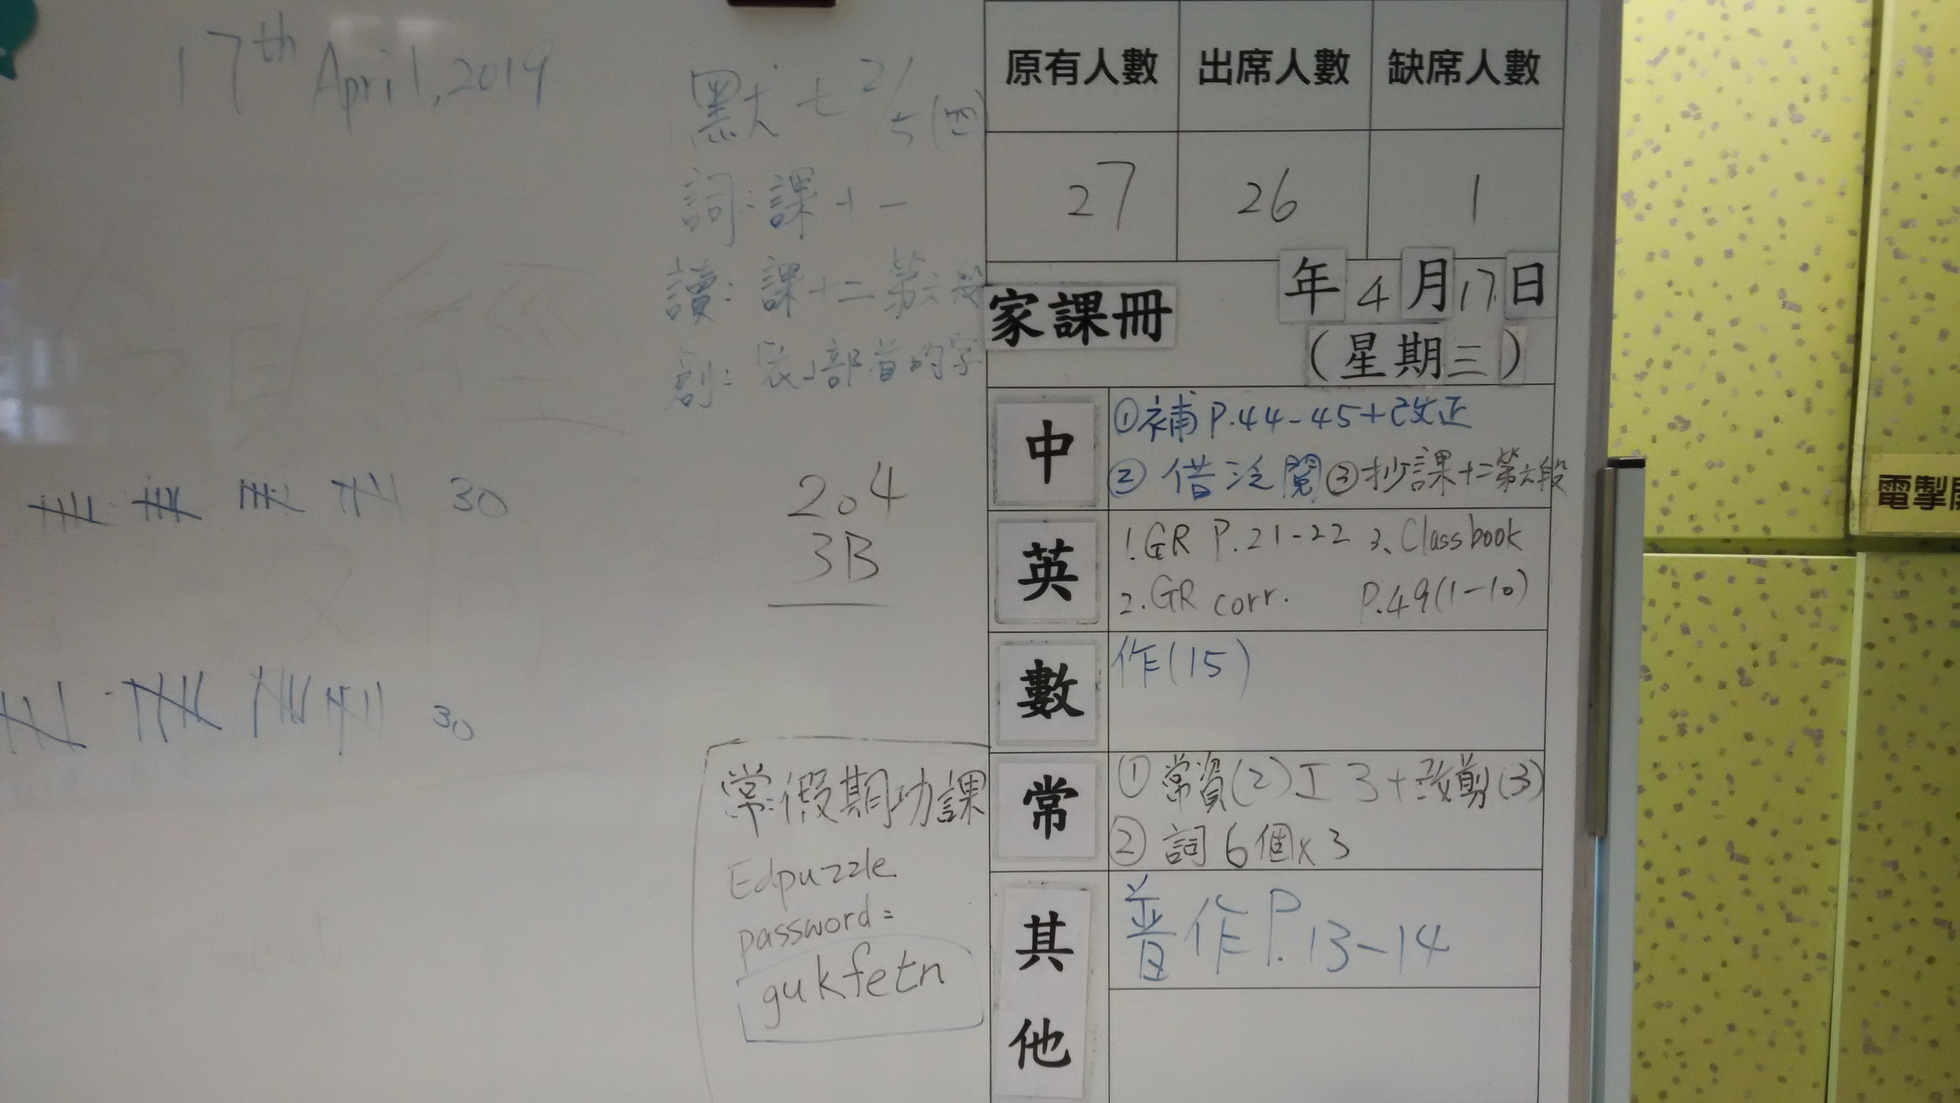 17th April, 2019
默七 2/5(四)
詞:課十一
讀:課十二第六段
創:「衣」部首的字
30
204
3B
30
常:假期功課
Edpuzzle
password=
gukfetn
原有人數 出席人數 缺席人數
27 26 1
家課冊 年4月17日
(星期三)
中 ①補 P.44-45+改正
②借泛閱③抄課十二第六段
英 1.GR P.21-22 3、Classbook
2.GR corr. P.49(1-10)
數 作(15)
常 ①常資(2)工3+改剪(3)
②詞6個x3
其他 普作P.13-14
電掣